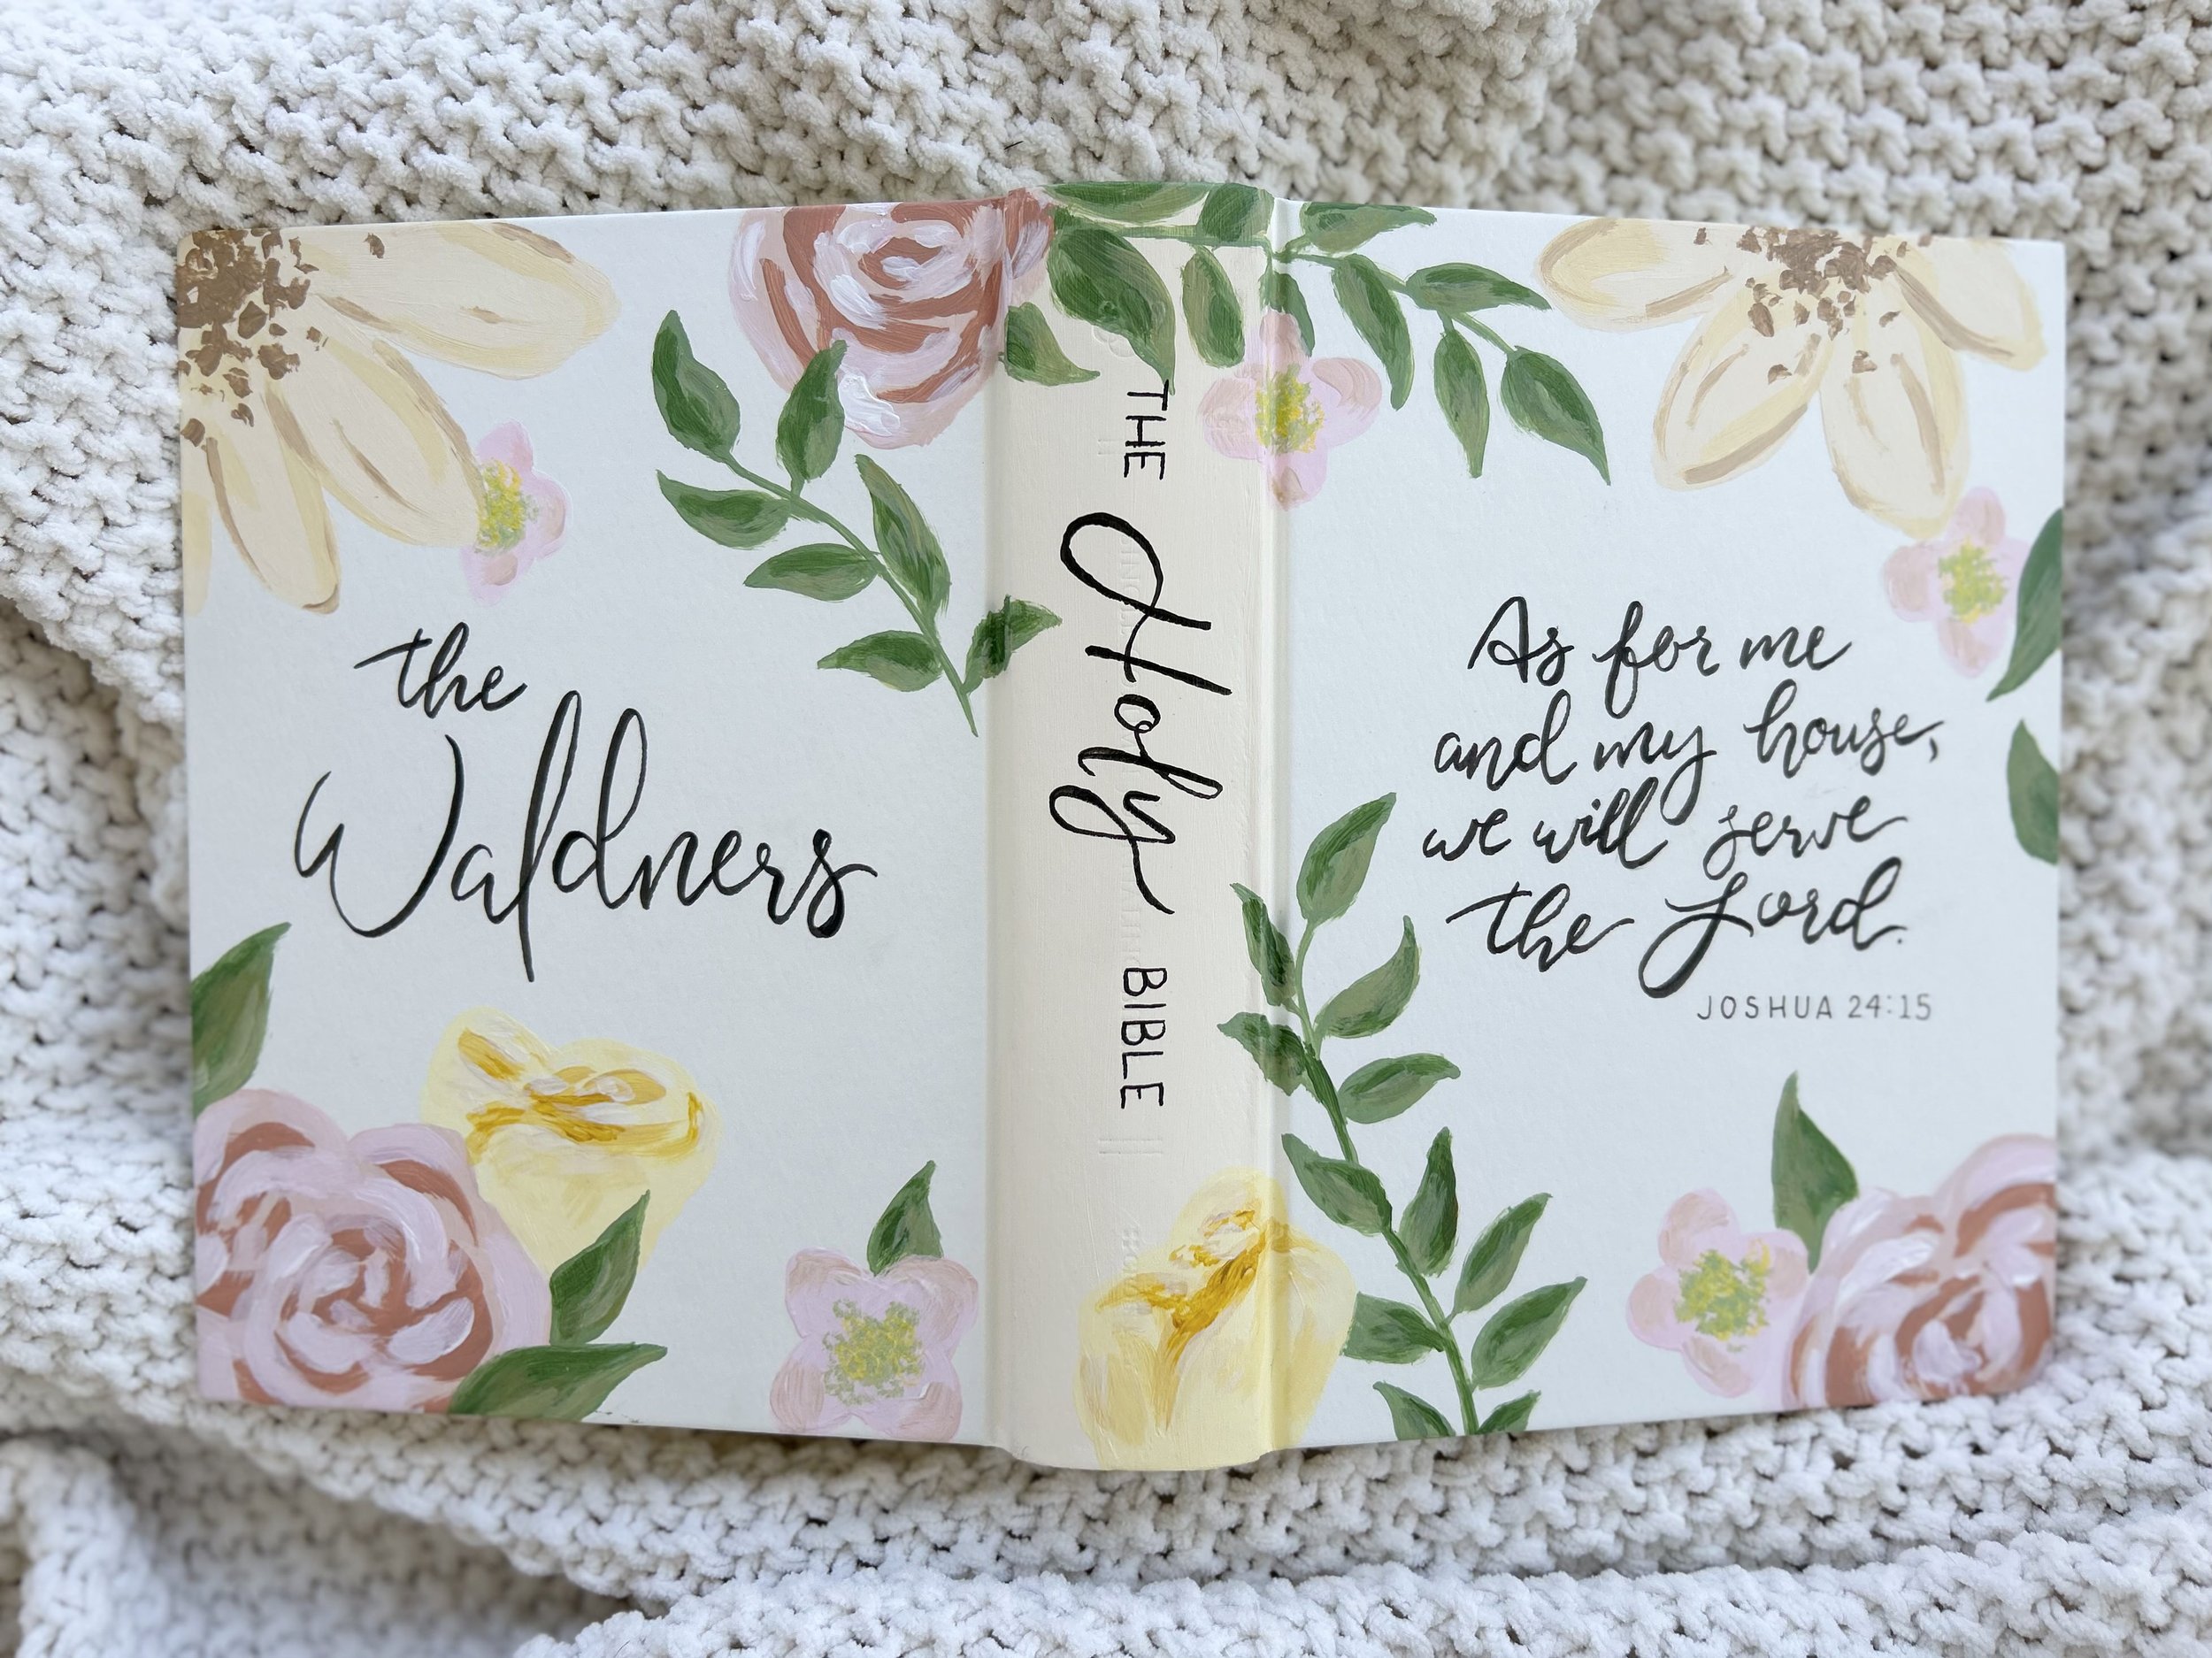 the
Waldners
THE Holy BIBLE
As for me
and my house,
we will serve
the Lord.
JOSHUA 24:15